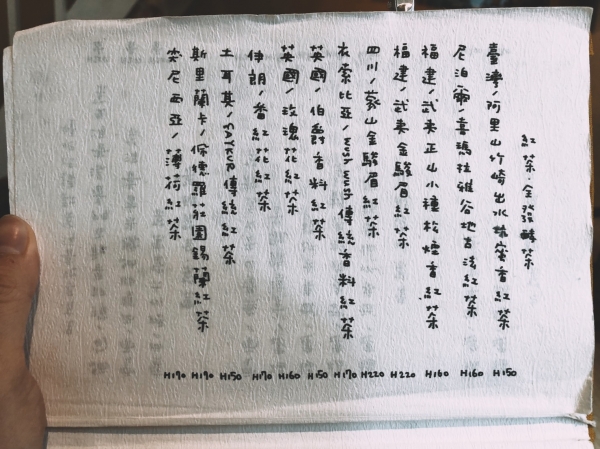 紅茶·全發酵茶
臺灣/阿里山竹崎出水蜜香紅茶 H150
尼泊爾/喜瑪拉雅谷地古法紅茶 H160
福建/武夷正山小種松焙香紅茶 H160
福建/武夷金駿眉紅茶 H220
四川/蒙山金駿眉紅茶 H220
衣索比亞/傳統香料紅茶 H170
英國/伯爵香料紅茶 H150
英國/玫瑰花紅茶 H160
伊朗/番紅花紅茶 H170
土耳其/ÇAYKUR傳統紅茶 H150
斯里蘭卡/保德羅莊園錫蘭紅茶 H170
突尼西亞/薄荷紅茶 H170